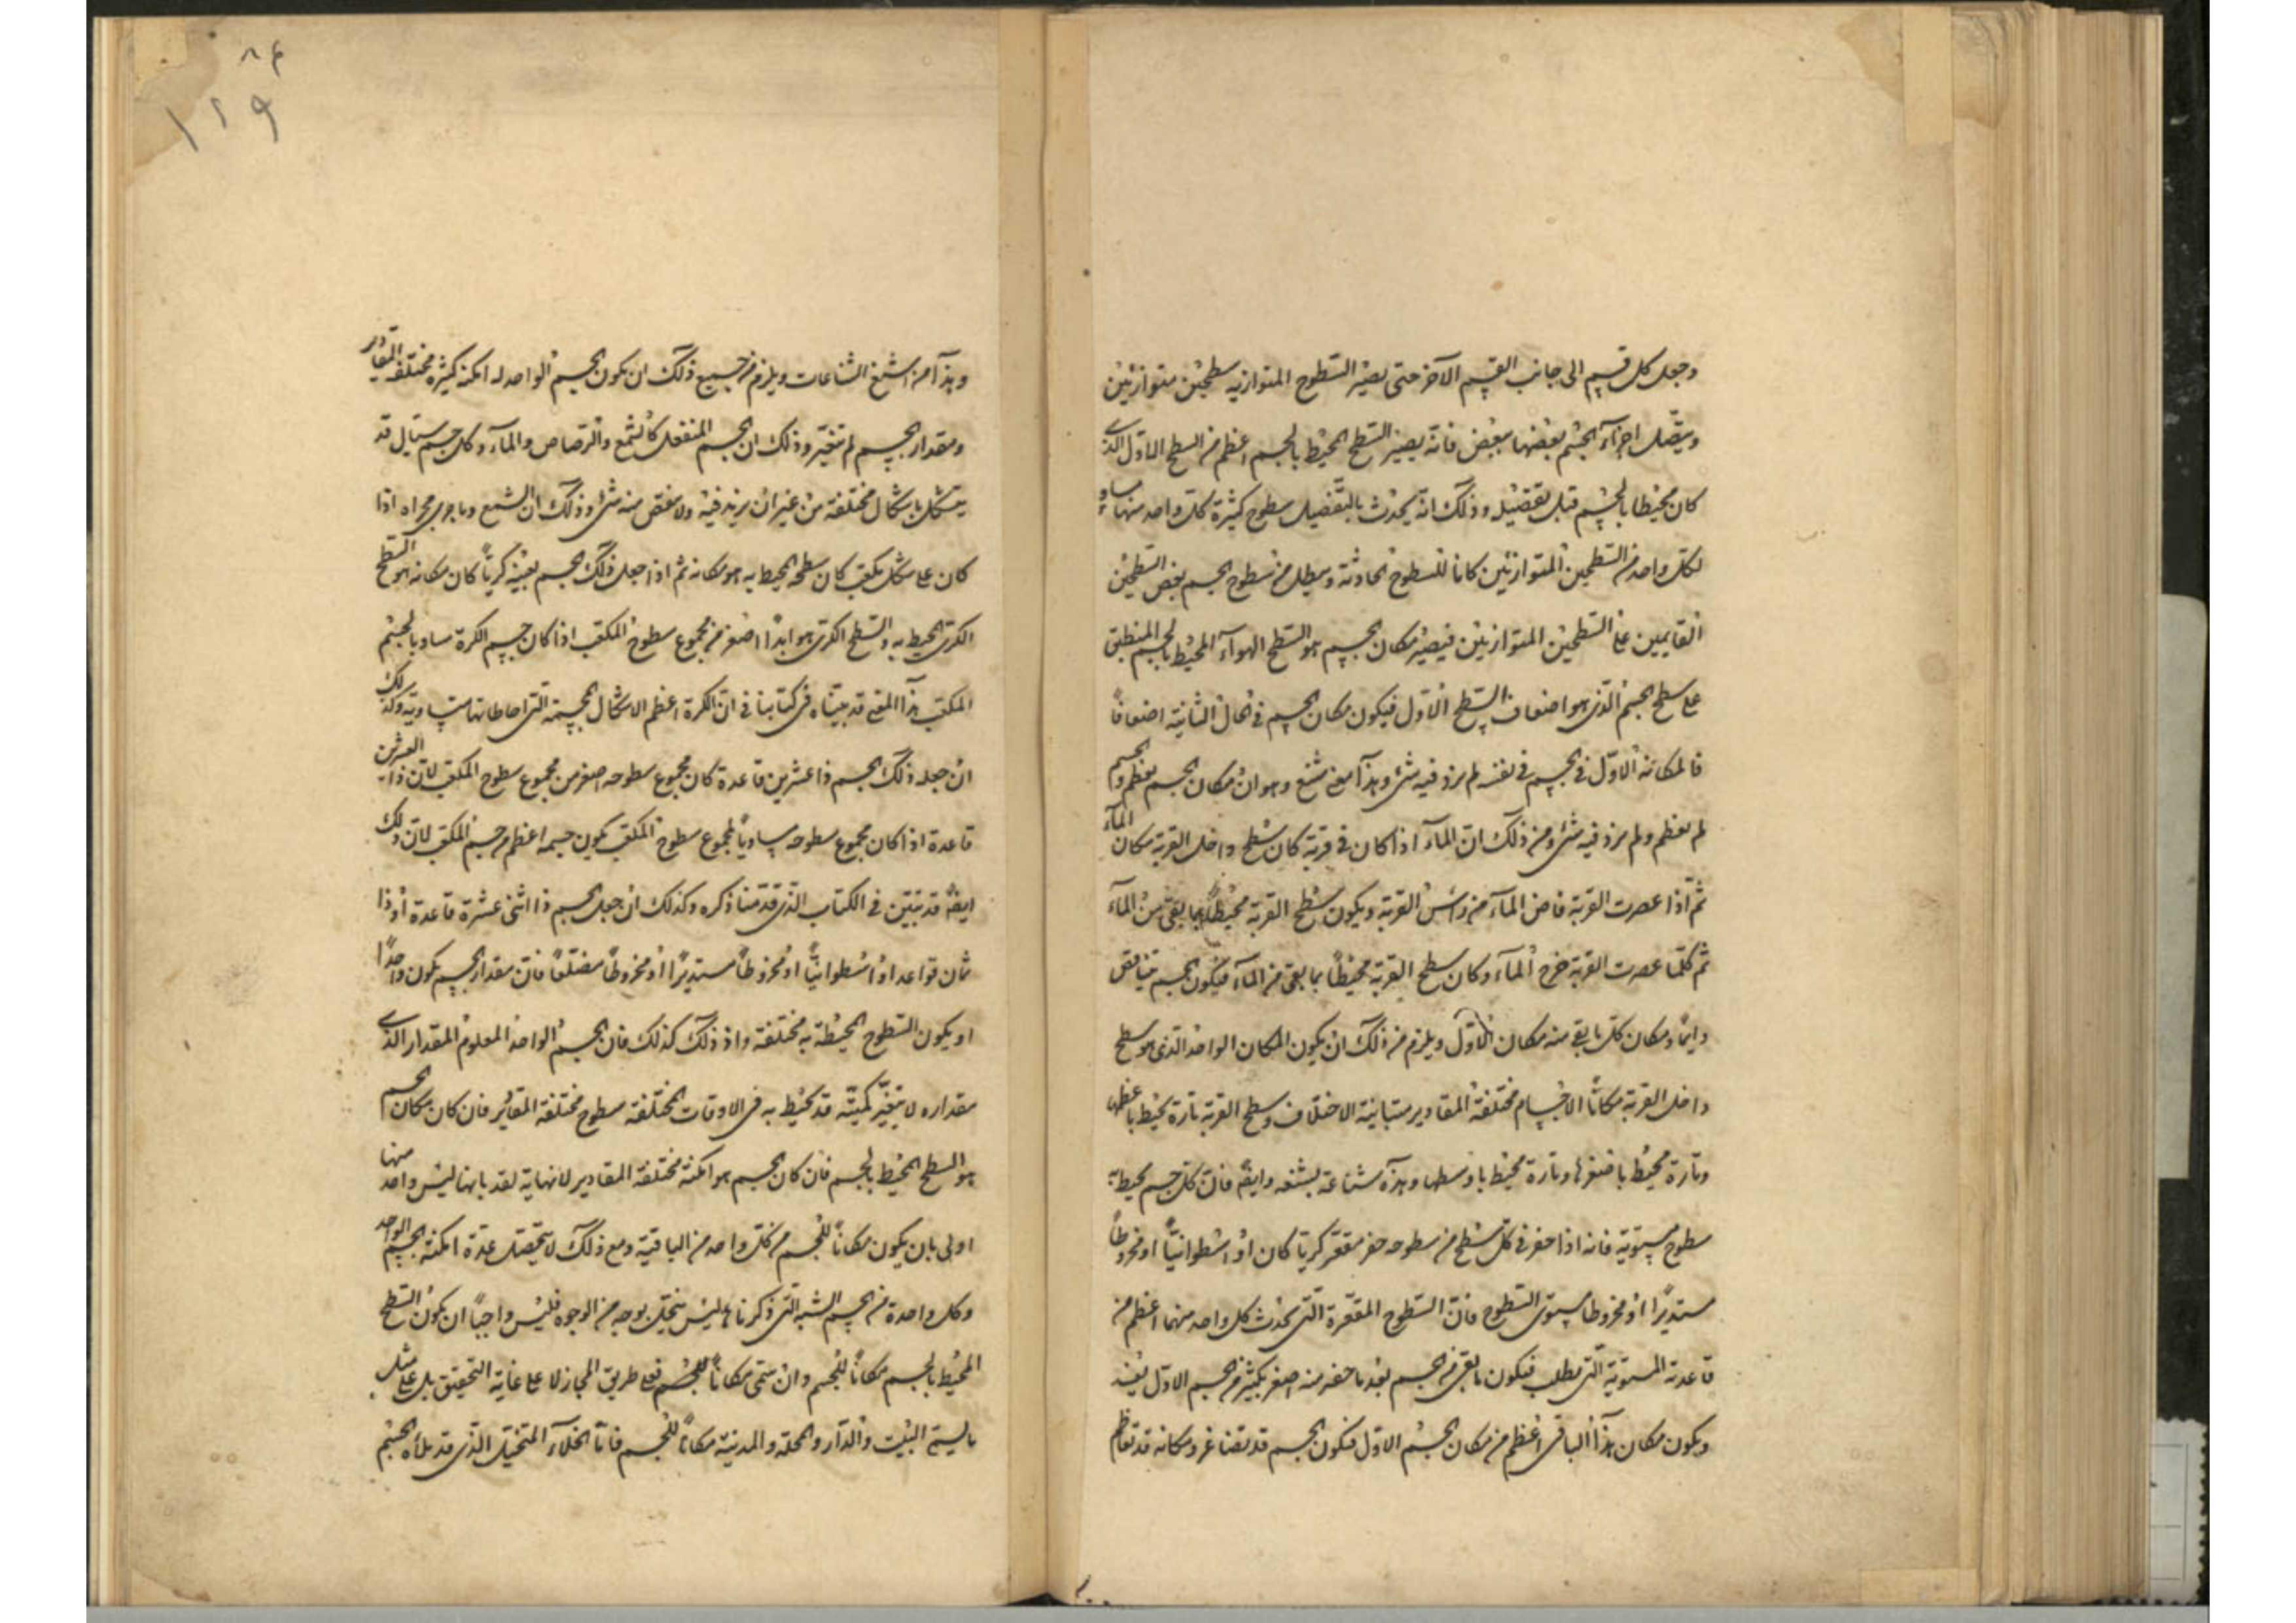 وجعل كل قسم الى جانب القسم الآخر حتى يصير السطوح المتوازيه سطحين متوازيين
ويتصل اجزآء الجسم بعضها ببعض فانه يصير السطح المحيط بالجسم اعظم من السطح الاول الذى
كان محيطا بالجسم قبل تفصيله وذلك انه يحدث بالتفصيل سطوح كثيرة كل واحد منها مساو
لكل واحد من السطحين المتوازيين كانا للسطوح الحادثة ويبطل من سطوح الجسم بعض السطحين
القايمين على السطحين المتوازيين فيصير مكان الجسم هو السطح الهوآء المحيط بالجسم المنطبق
على سطح الجسم الذى هو اضعاف السطح الاول فيكون مكان الجسم فى الحال الثانية اضعافاً
لمكانه الاول فى الجسم فى نفسه لم يزد فيه شئ وهذا معنى شنع وهو ان مكان الجسم يعظم والجسم
لم يعظم ولم يزد فيه شئ ومن ذلك ان المآء اذا كان فى قربة كان سطح داخل القربة مكان المآء
ثم اذا عصرت القربة فاض المآء من رأس القربة ويكون سطح القربة محيطاً بما بقى من المآء
ثم كلما عصرت القربة خرج المآء وكان سطح القربة محيطاً بما بقى من المآء فيكون الجسم يتناقص
دايماً ومكان كل ما بقى منه مكان الاول ويلزم من ذلك ان يكون المكان الواحد الذى هو سطح
داخل القربة مكاناً الاجسام مختلفة المقادير متباينة الاختلاف وسطح القربة تارة يحيط باعظمها
وتارة محيط باصغرها وتارة محيط باوسطها وهذه شناعة بشعه وايضً فان كل جسم يحيط به
سطوح مستوية فانه اذا حفر فى كل سطح من سطوحه حفر مقعر كريا كان او اسطوانيًا او مخروطاً
مستديرًا او مخروطا مستوى السطوح فان السطوح المقعرة التى يحدث كل واحد منها اعظم من
قاعدته المستوية التى بطلت فيكون ما بقى من الجسم بعد ما حفر منه اصغر بكثير من الجسم الاول بعينه
ويكون مكان هذا الباقى اعظم من مكان الجسم الاول فيكون الجسم قد تصاغر ومكانه قد تعاظم
٨٤
١٢٩
وهذا من اشنع الشناعات ويلزم من جميع ذلك ان يكون الجسم الواحد له امكنة كثيرة مختلفة المقادير
ومقدار الجسم لم تتغير وذلك ان الجسم المنفعل كالشمع والرصاص والمآء وكل جسم سيال قد
يتشكل باشكال مختلفة من غير ان يزيد فيه ولا ينقص منه شئ وذلك ان الشمع وما جرى مجراه اذا
كان على شكل مكعب كان سطحه المحيط به هو مكانه ثم اذا جعل ذلك الجسم بعينه كرياً كان مكانه هو السطح
الكرى المحيط به والسطح الكرى هو ابدًا اصغر من مجموع سطوح المكعب اذا كان جسم الكرة مساويا لجسم
المكعب هذا المعنى قد بيناه فى كتابنا فى ان الكرة اعظم الاشكال المجسمة التى احاطاتها متساوية وكذلك
ان جعل ذلك الجسم ذا عشرين قاعدة كان مجموع سطوحه اصغر من مجموع سطوح المكعب لان ذا العشرين
قاعدة اذا كان مجموع سطوحه مساوياً لمجموع سطوح المكعب يكون جسمه اعظم من جسم المكعب لان ذلك
ايضً قد تبين فى الكتاب الذى قدمنا ذكره وكذلك ان جعل الجسم ذا اثنى عشرة قاعدة او ذا
ثمان قواعد او اسطوانيًا او مخروطاً مستديرًا او مخروطاً مضلعاً فان مقدار الجسم يكون واحدًا
او يكون السطوح المحيطة به مختلفة واذ ذلك كذلك فان الجسم الواحد المعلوم المقدار الذى
مقداره لا يتغير كميته قد يحيط به فى الاوقات المختلفة سطوح مختلفة المقادير فان كان مكان الجسم
هو السطح المحيط بالجسم فان كان الجسم هو امكنة مختلفة المقادير لا نهاية لعددها ليس واحد منها
اولى بان يكون مكاناً للجسم من كل واحد من الباقية ومع ذلك لا يتحصل عدة امكنة الجسم الواحد
وكل واحدة من الشبه التى ذكرناها ليس ينحل بوجه من الوجوه فليس واجباً ان يكون السطح
المحيط بالجسم مكاناً للجسم وان سمى مكاناً للجسم فعلى طريق المجاز لا على غاية التحقيق بل على مثل
ما يسمى البيت والدار والمحلة والمدينة مكاناً للجسم فاما الخلآء المتخيل الذى قد ملأه الجسم